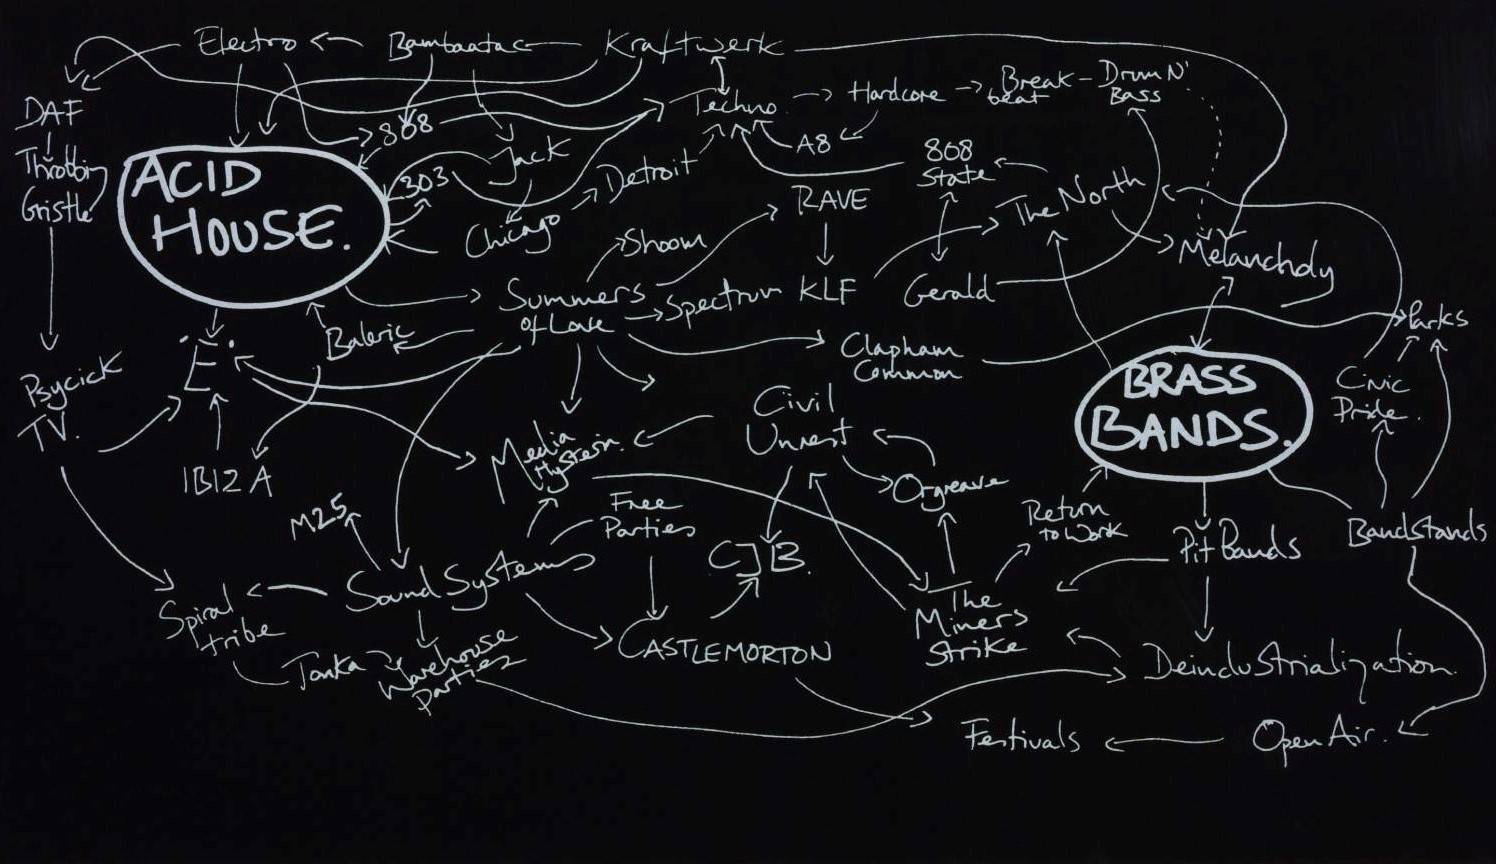 Electro
Bambaata
Kraftwerk
DAF
Throbbing
Gristle
808
Techno
Hardcore
Break
beat
Drum N'
Bass
ACID
HOUSE.
303
Jack
Detroit
A8
808
State
Chicago
Shoom
RAVE
The North
Summers
of Love
Spectrum
KLF
Gerald
Melancholy
Parks
Baleric
.'E'.
Clapham
Common
BRASS
BANDS.
Civic
Pride.
Psycick
TV.
IBIZA
Media
Hysteria.
Civil
Unrest
Orgreave
M25
Free
Parties
CJB.
Return
to Work
Pit Bands
Bandstands
Sound Systems
Spiral
tribe
Tonka
Warehouse
Parties
CASTLEMORTON
The
Miners
Strike
Deindustrialization.
Festivals
Open Air.